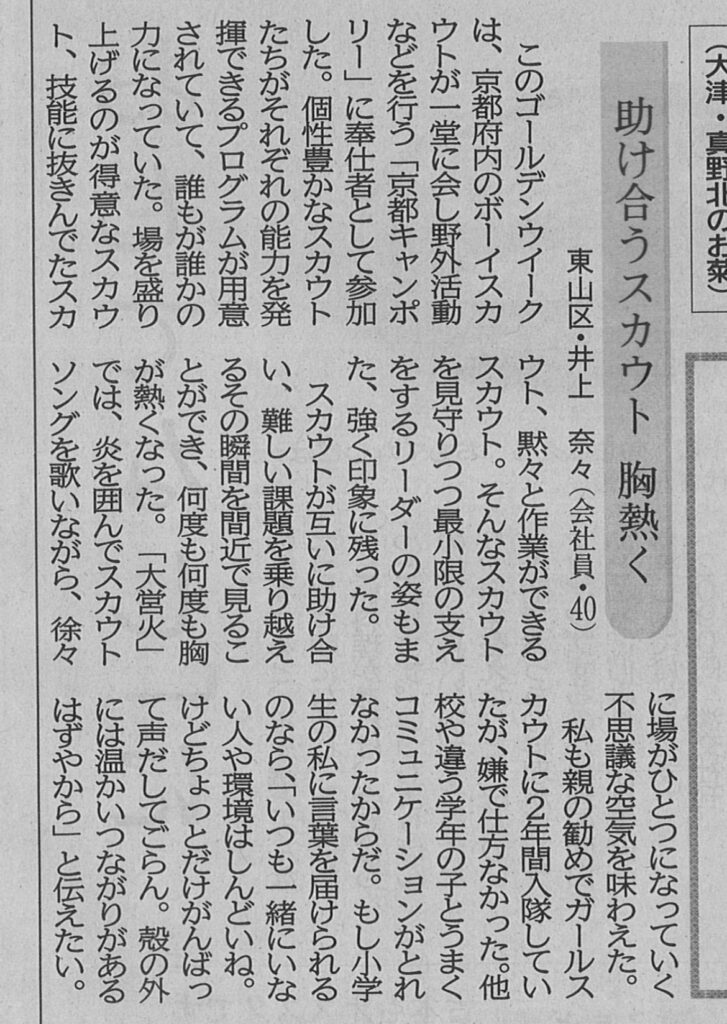 (大津・真野北のお菊)
助け合うスカウト 胸熱く
東山区・井上 奈々(会社員・40)
このゴールデンウイーク
は、京都府内のボーイスカ
ウトが一堂に会し野外活動
などを行う「京都キャンポ
リー」に奉仕者として参加
した。個性豊かなスカウト
たちがそれぞれの能力を発
揮できるプログラムが用意
されていて、誰もが誰かの
力になっていた。場を盛り
上げるのが得意なスカウ
ト、技能に抜きんでたスカ
ウト、黙々と作業ができる
スカウト。そんなスカウト
を見守りつつ最小限の支え
をするリーダーの姿もま
た、強く印象に残った。
スカウトが互いに助け合
い、難しい課題を乗り越え
るその瞬間を間近で見るこ
とができ、何度も何度も胸
が熱くなった。「大営火」
では、炎を囲んでスカウト
ソングを歌いながら、徐々
に場がひとつになっていく
不思議な空気を味わえた。
私も親の勧めでガールス
カウトに2年間入隊してい
たが、嫌で仕方なかった。他
校や違う学年の子とうまく
コミュニケーションがとれ
なかったからだ。もし小学
生の私に言葉を届けられる
のなら、「いつも一緒にいな
い人や環境はしんどいね。
けどちょっとだけがんばっ
て声だしてごらん。殻の外
には温かいつながりがある
はずやから」と伝えたい。